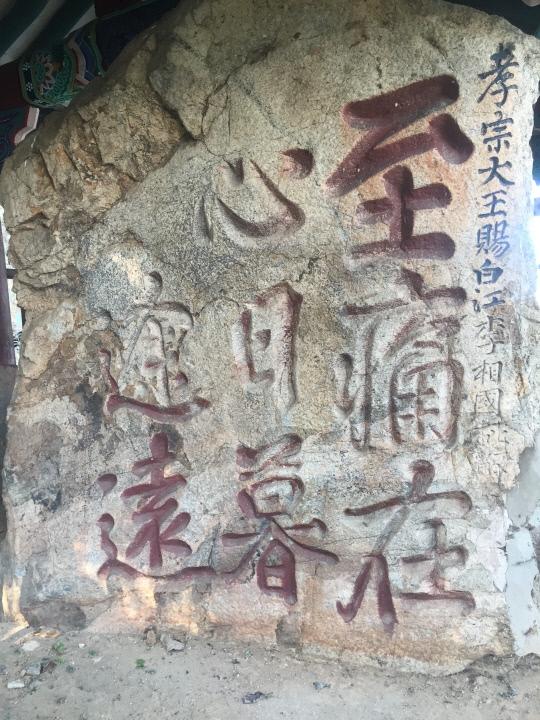 孝宗大王賜白江李相國
至痛在
心日暮
途遠